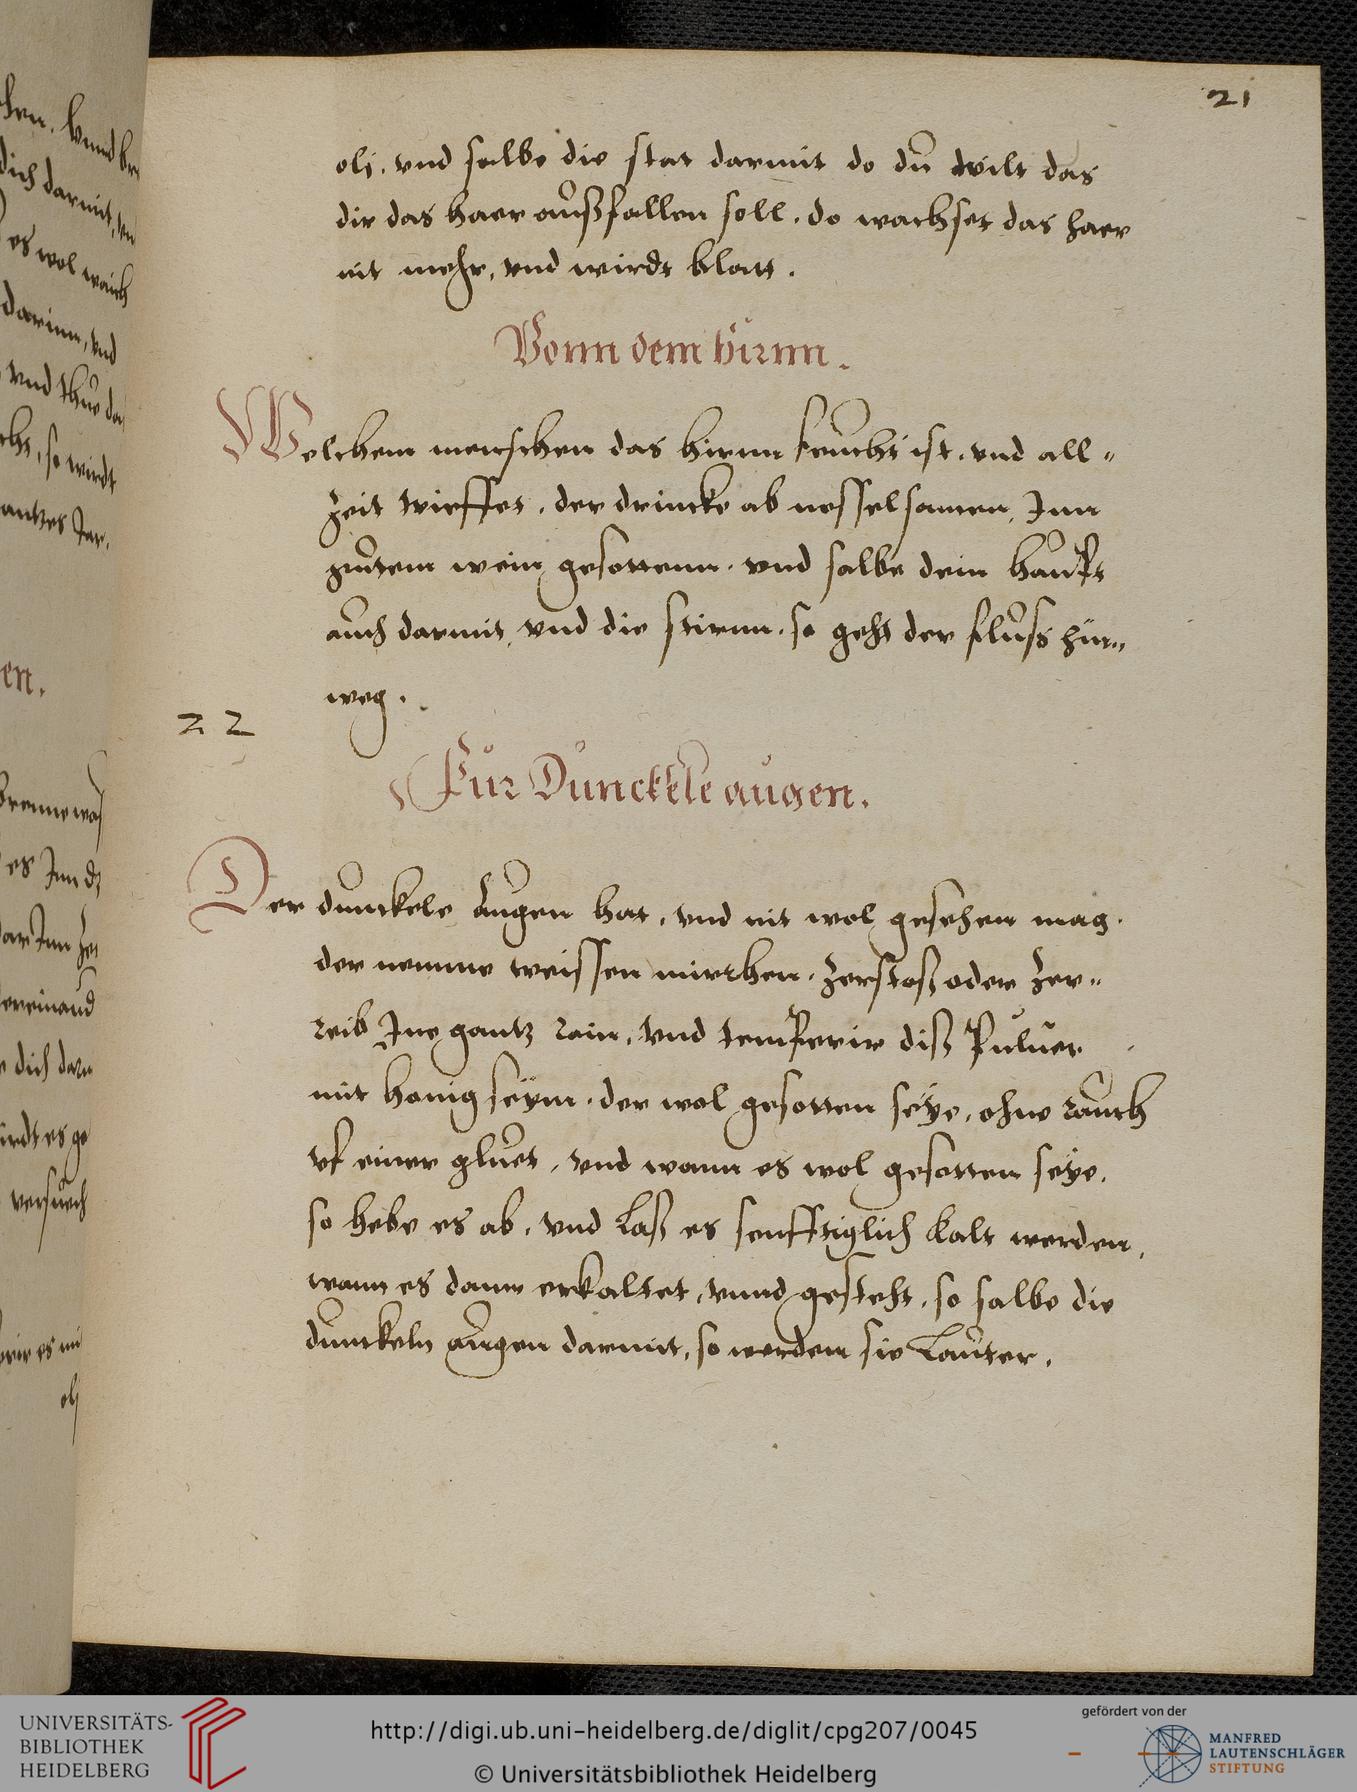 21
olj. vnd salbe die stat darmit do dŭ wilt das
dir das haer aŭßfallen soll. do wachset das haer
nit mehr, vnd wirdt blatt.
Vonn dem hirnn.
Welchem menschen das hirnn feŭcht ist. vnd all„
zeit trieffet. der drincke ab nesselsamen, Jnn
gŭtem wein gesottenn. vnd salbe dein haŭpt
aŭch darmit, vnd die stirnn. so geht der flŭss hin„
weg.
22
Für Dŭnckele aŭgen.
Der dŭnckele Aŭgen hat, vnd nit wol gesehen mag.
der nemme weissen mirrhen. zerstoß oder zer„
reib Jne gantz rain, vnd temperir diß Pŭlŭer
mit honigseym. der wol gesotten seÿe, ohne raŭch
vf einer glŭet, vnd wann es wol gesotten seÿe.
so hebe es ab, vnd laß es senfftiglich kalt werden,
wann es dann erkaltet, vnnd gesteht, so salbe die
dŭnckeln aŭgen darmit, so werden sie Laŭter.
vnd
darinn, vnd
so wirdt
en.
dich darmit,
es wol waich
vnd thue da
es Jnn
versuech
olj
UNIVERSITÄTS-
BIBLIOTHEK
HEIDELBERG
http://digi.ub.uni-heidelberg.de/diglit/cpg207/0045
© Universitätsbibliothek Heidelberg
gefördert von der
MANFRED
LAUTENSCHLÄGER
STIFTUNG